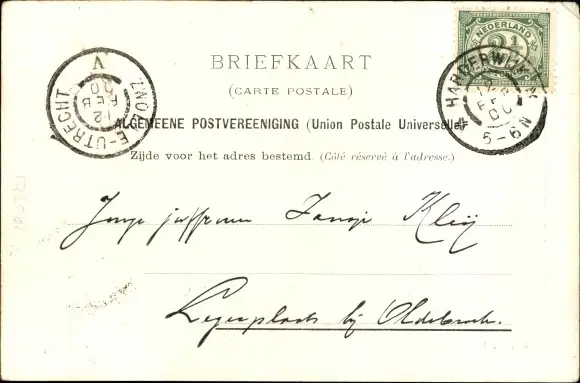 NEDERLAND
2½
BRIEFKAART
(CARTE POSTALE)
ALGEMEENE POSTVEREENIGING (Union Postale Universelle)
Zijde voor het adres bestemd. (Côté réservé à l'adresse.)
ZWOLLE-UTRECHT
V
12
FEB
00
HARDERWIJK
12
FEB
00
5-6N
Jonge juffrouw Kleij
Legerplaats bij Oldebroek.